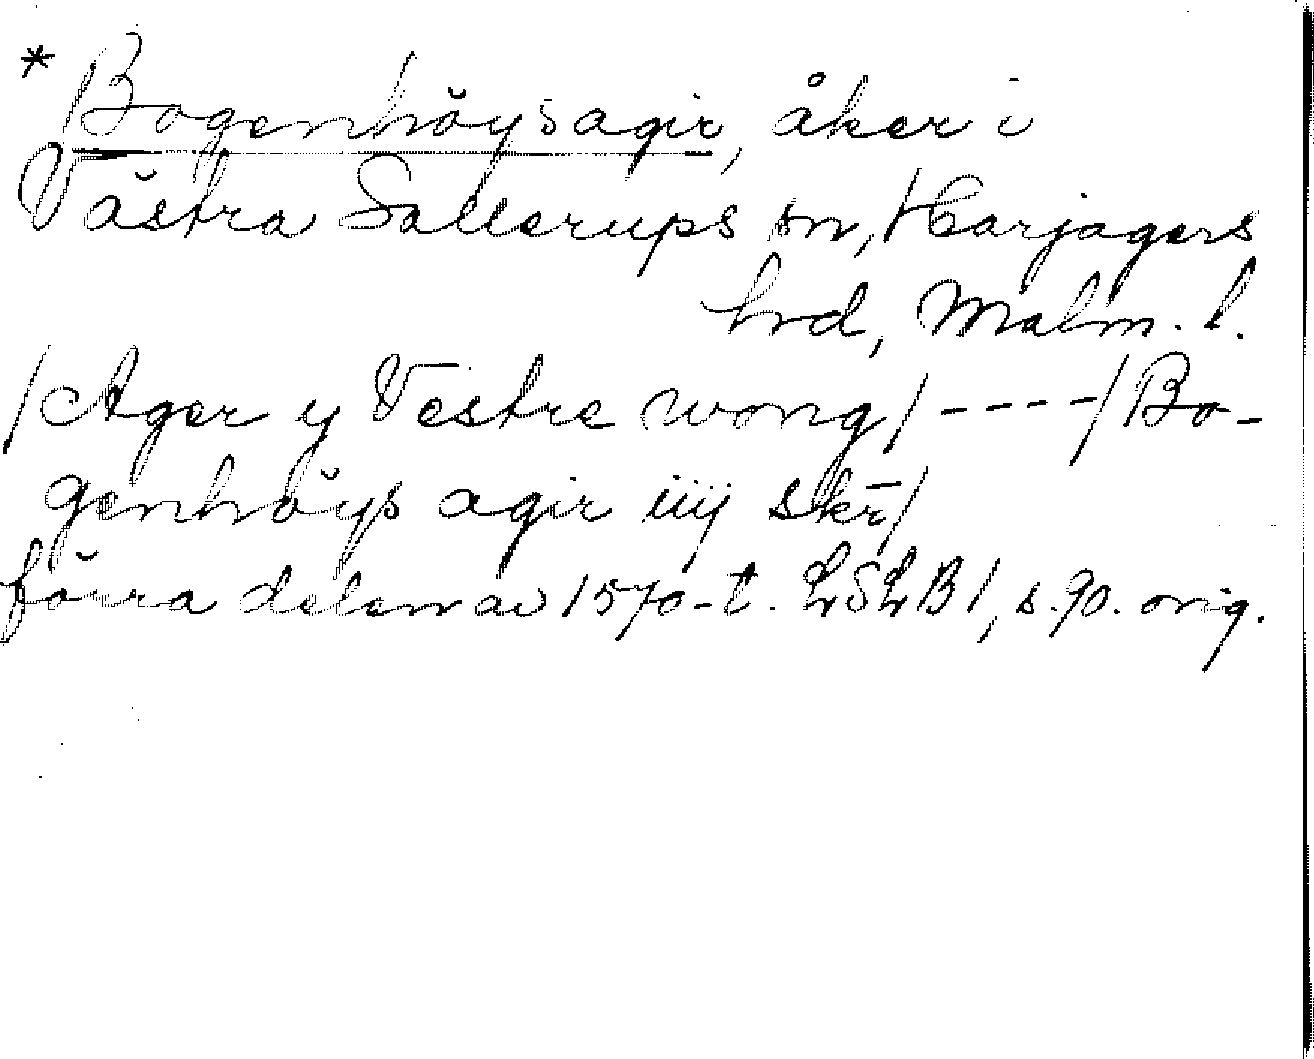 * Bogenhöysagir, åker i
Västra Sallerups sn, Harjagers
hrd, Malm. l.
/Ager y Vestre wong/ ----/Bo-
genhöys agir iiij skr̄/
förra delen av 1570-t. LSLB1, s. 90. orig.